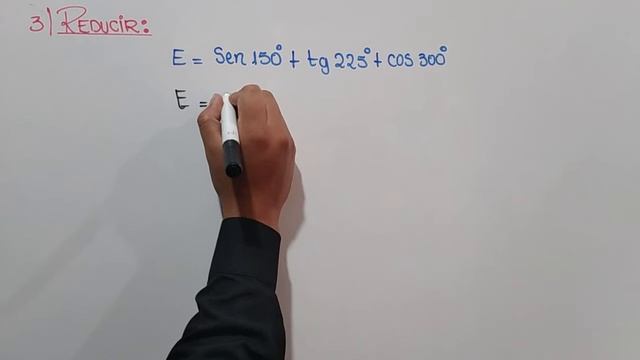 3) REDUCIR:
E = Sen 150° + tg 225° + cos 300°
E =